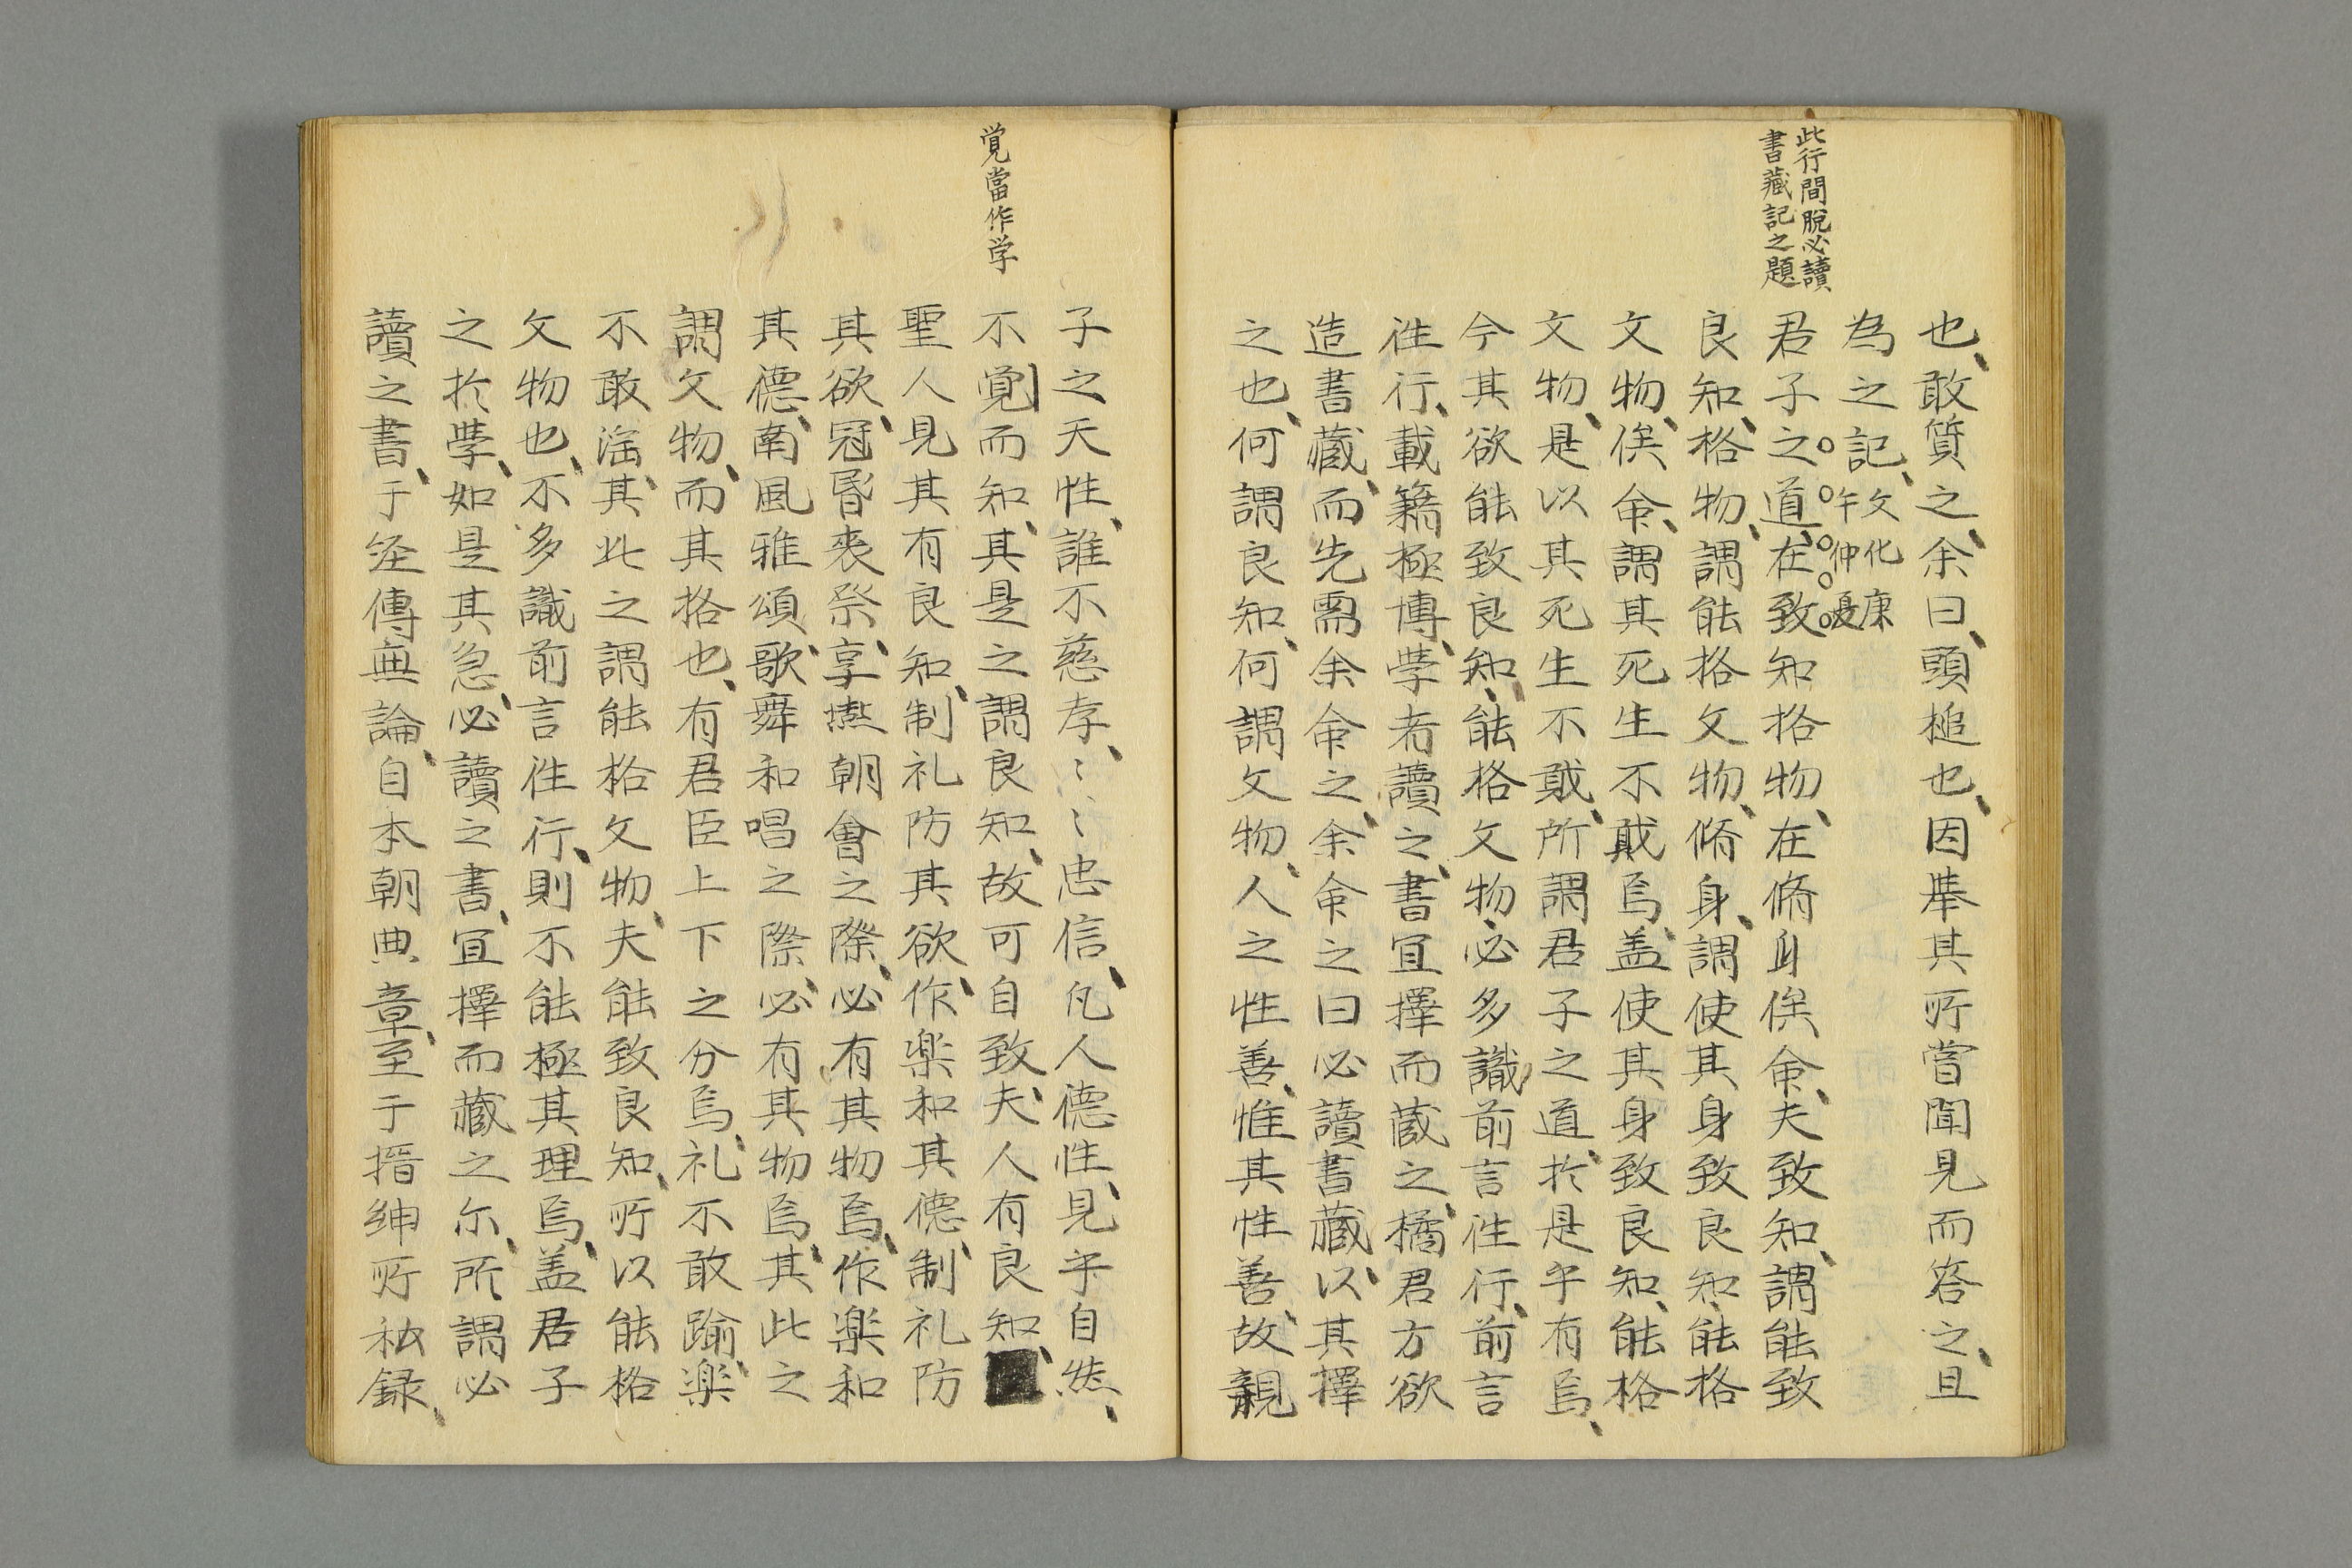 此行間脫必讀
書藏記之題
也、敢質之、余曰、頭槌也、因舉其所嘗聞見而答之、且
為之記、文化庚
午仲夏
君子之道、在致知格物、在脩身俟命、夫致知、謂能致
良知、格物、謂能格文物、脩身、謂使其身致良知、能格
文物、俟命、謂其死生不貳焉、盖使其身致良知、能格
文物、是以其死生不貳、所謂君子之道、於是乎有焉、
今其欲能致良知、能格文物、必多識前言往行、前言
往行、載籍極博、學者讀之、書宜擇而藏之、橘君方欲
造書藏、而先需余命之、余命之曰必讀書藏、以其擇
之也、何謂良知、何謂文物、人之性善、惟其性善、故親
覚當作学
子之天性、誰不慈孝、〻〻忠信、凡人德性、見乎自然、
不覚而知、其是之謂良知、故可自致、夫人有良知、
聖人見其有良知、制礼防其欲、作楽和其德、制礼防
其欲、冠昏喪祭、享燕朝會之際、必有其物焉、作楽和
其德、南風雅頌、歌舞和唱之際、必有其物焉、其此之
謂文物、而其格也、有君臣上下之分焉、礼不敢踰、楽
不敢淫、其此之謂能格文物、夫能致良知、所以能格
文物也、不多識前言往行、則不能極其理焉、盖君子
之於學、如是其急、必讀之書、宜擇而藏之尓、所謂必
讀之書、于経傳無論、自本朝典章、至于搢紳所私録、